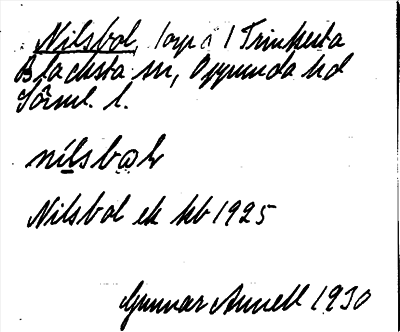 Nilsbol, torp å 1 Trinkesta
Blacksta sn, Oppunda hd
Söml. l.
nilsbol
Nilsbol ek kb 1925
Gunnar Annell 1930